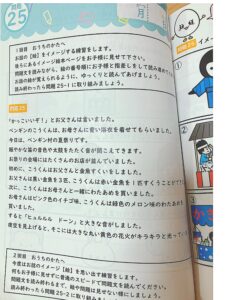 問題
25
1回目 おうちのかたへ
お話の【絵】をイメージする練習をします。
後ろにあるイメージ絵本ページをお子様に見せて下さい。
問題文を読みながら、絵の番号順にお子様と指差しをして読み進めて
お話の絵が覚えられるように、ゆっくりと読んであげましょう。
読み終わったら問題25-1に取り組みましょう。
問題25
「かっこいいぞ!」とお父さんは言いました。
ペンギンのこうくんは、お母さんに青い浴衣を着せてもらいました。
今日は、ペンギン村の夏祭りです。
賑やかな笛の音色や太鼓をたたく音が聞こえてきます。
お祭りの会場にはたくさんのお店が並んでいました。
初めに、こうくんはお父さんと金魚すくいをしました。
お父さんは黒い金魚を3匹、こうくんは赤い金魚を1匹すくうことがで
次に、こうくんはお母さんと一緒にわたあめを買いました。
お母さんはピンク色のイチゴ味、こうくんは緑色のメロン味のわたあめ
しました。
すると「ヒュルルル ドーン」と大きな音がしました。
夜空を見上げると、そこには大きな丸い黄色の花火がキラキラと光ってい
2回目 おうちのかたへ
今度はお話【絵】を思い出す練習をします。
何もお子様に見せずに普通のスピードで問題文を読んでください。
読み終わったら問題25-2に取り組みましょう。
問題25
イメー